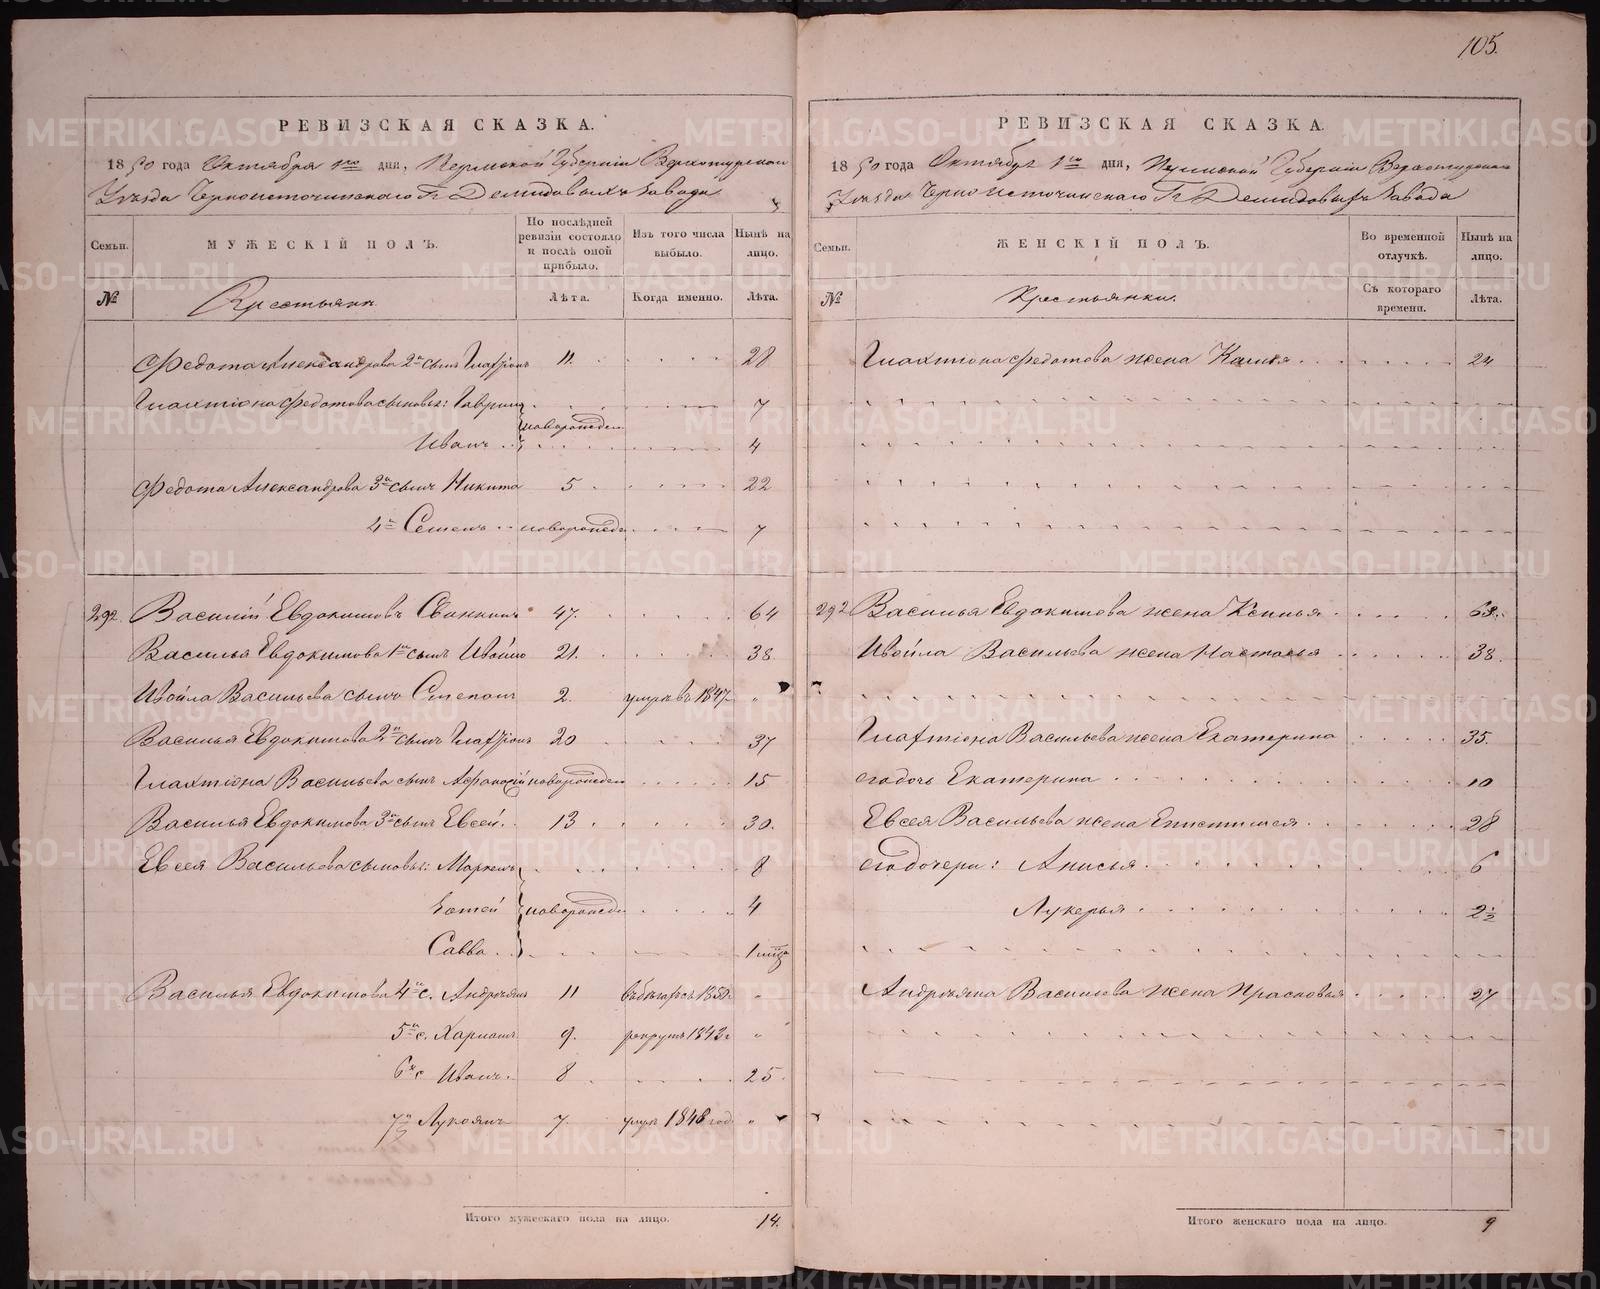 105.
РЕВИЗСКАЯ СКАЗКА.
1850 года Октября 1го дня, Пермской Губерніи Верхотурскаго
Уѣзда Черноисточинскаго Гг Демидовыхъ Завода
Семьи.
МУЖЕСКІЙ ПОЛЪ.
По послѣдней ревизіи состояло и послѣ оной прибыло.
Изъ того числа выбыло.
Нынѣ на лицо.
№
Крестьяне
Лѣта.
Когда именно.
Лѣта.
Федота Александрова 2й сынъ Галахтіонъ 11. 28
Галахтіона Федотова сыновья: Гаврила 7
новорожден
Иванъ 4
Федота Александрова 3й сынъ Никита 5 22
4й Семенъ новорожден 7
292. Василій Евдокимовъ 47. 64
Василья Евдокимова 1й сынъ Ивойло 21. 38.
Ивойла Васильева сынъ Степанъ 2. умръ въ 1847 "
Василья Евдокимова 2й сынъ Галахтіонъ 20 37
Галахтіона Васильева сынъ Афанасій новорожден 15
Василья Евдокимова 3й сынъ Евсей. 13 30.
Евсея Васильева сыновья: Маркелъ 8
новорожден 4
Савва 1 мцъ
Василья Евдокимова 4й с. Андреянъ 11 въ бѣгахъ съ 1850г "
5й с. Харламъ 9. рекрутъ 1843г "
6й с Иванъ. 8 25.
7й Лукоянъ 7. умръ 1848 год "
Итого мужескаго пола на лицо. 14.
РЕВИЗСКАЯ СКАЗКА.
1850 года Октября 1го дня, Пермской Губерніи Верхотурскаго
Уѣзда Черноисточинскаго Гг Демидовыхъ Завода
Семьи.
ЖЕНСКІЙ ПОЛЪ.
Во временной отлучкѣ.
Нынѣ на лицо.
№
Крестьянки.
Съ котораго времени.
Лѣта.
Галахтіона Федотова жена 24
292 Василья Евдокимова жена Ксенья 63.
Ивойла Васильева жена Настасья 38.
Галахтіона Васильева жена Екатерина 35.
его дочь Екатерина 10
Евсея Васильева жена Епистимея 28
его дочери: Анисья 6
Лукерья 2½
Андреяна Васильева жена Прасковья 27
Итого женскаго пола на лицо. 9
METRIKI.GASO-URAL.RU